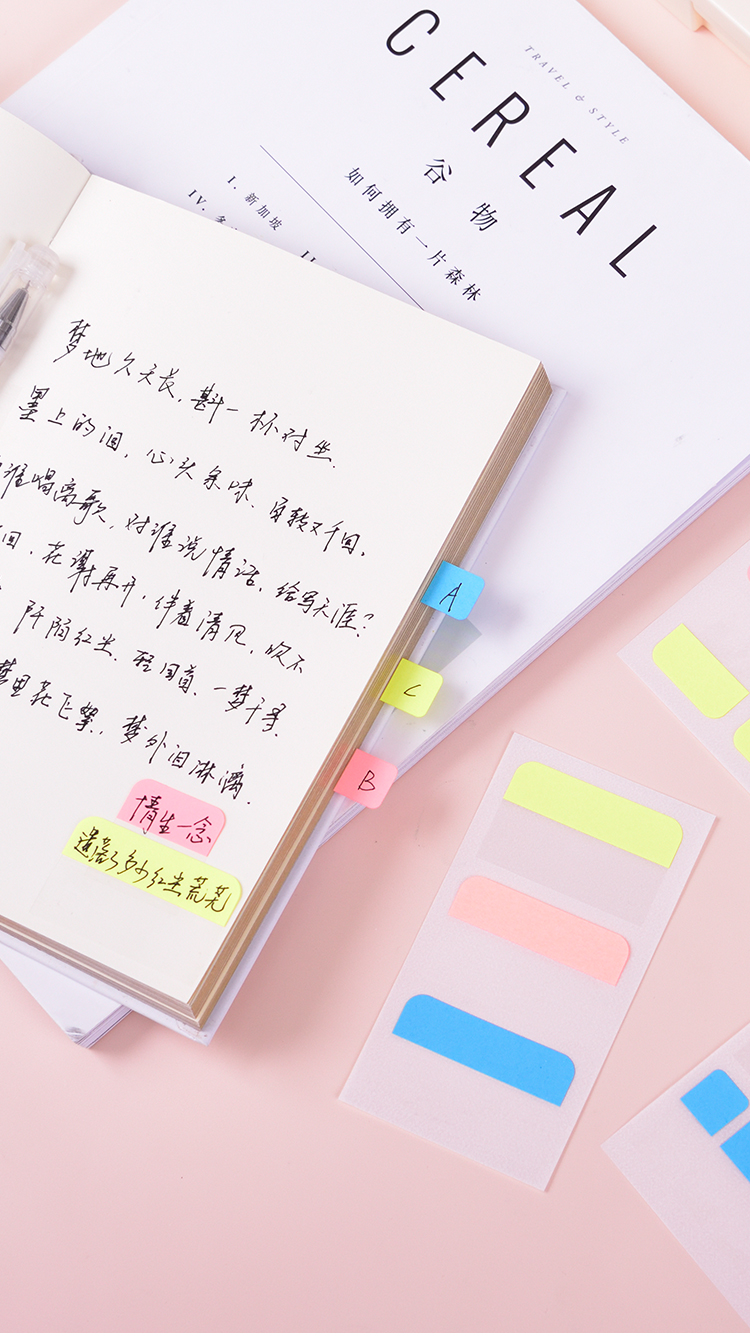 CEREAL
TRAVEL & STYLE
谷物
如何拥有一片森林
I. 新加坡
IV.
II
梦地久天长,斟一杯对坐.
墨上的泪,心头余味、百转又千回,
谁唱离歌,对谁说情话,给写天涯?
回、花谢再开,伴着清风,吹不
阡陌红尘、轻回首、一梦千寻
梦里花飞絮,梦外泪淋漓.
情生一念
遗落多少红尘荒芜
A
C
B